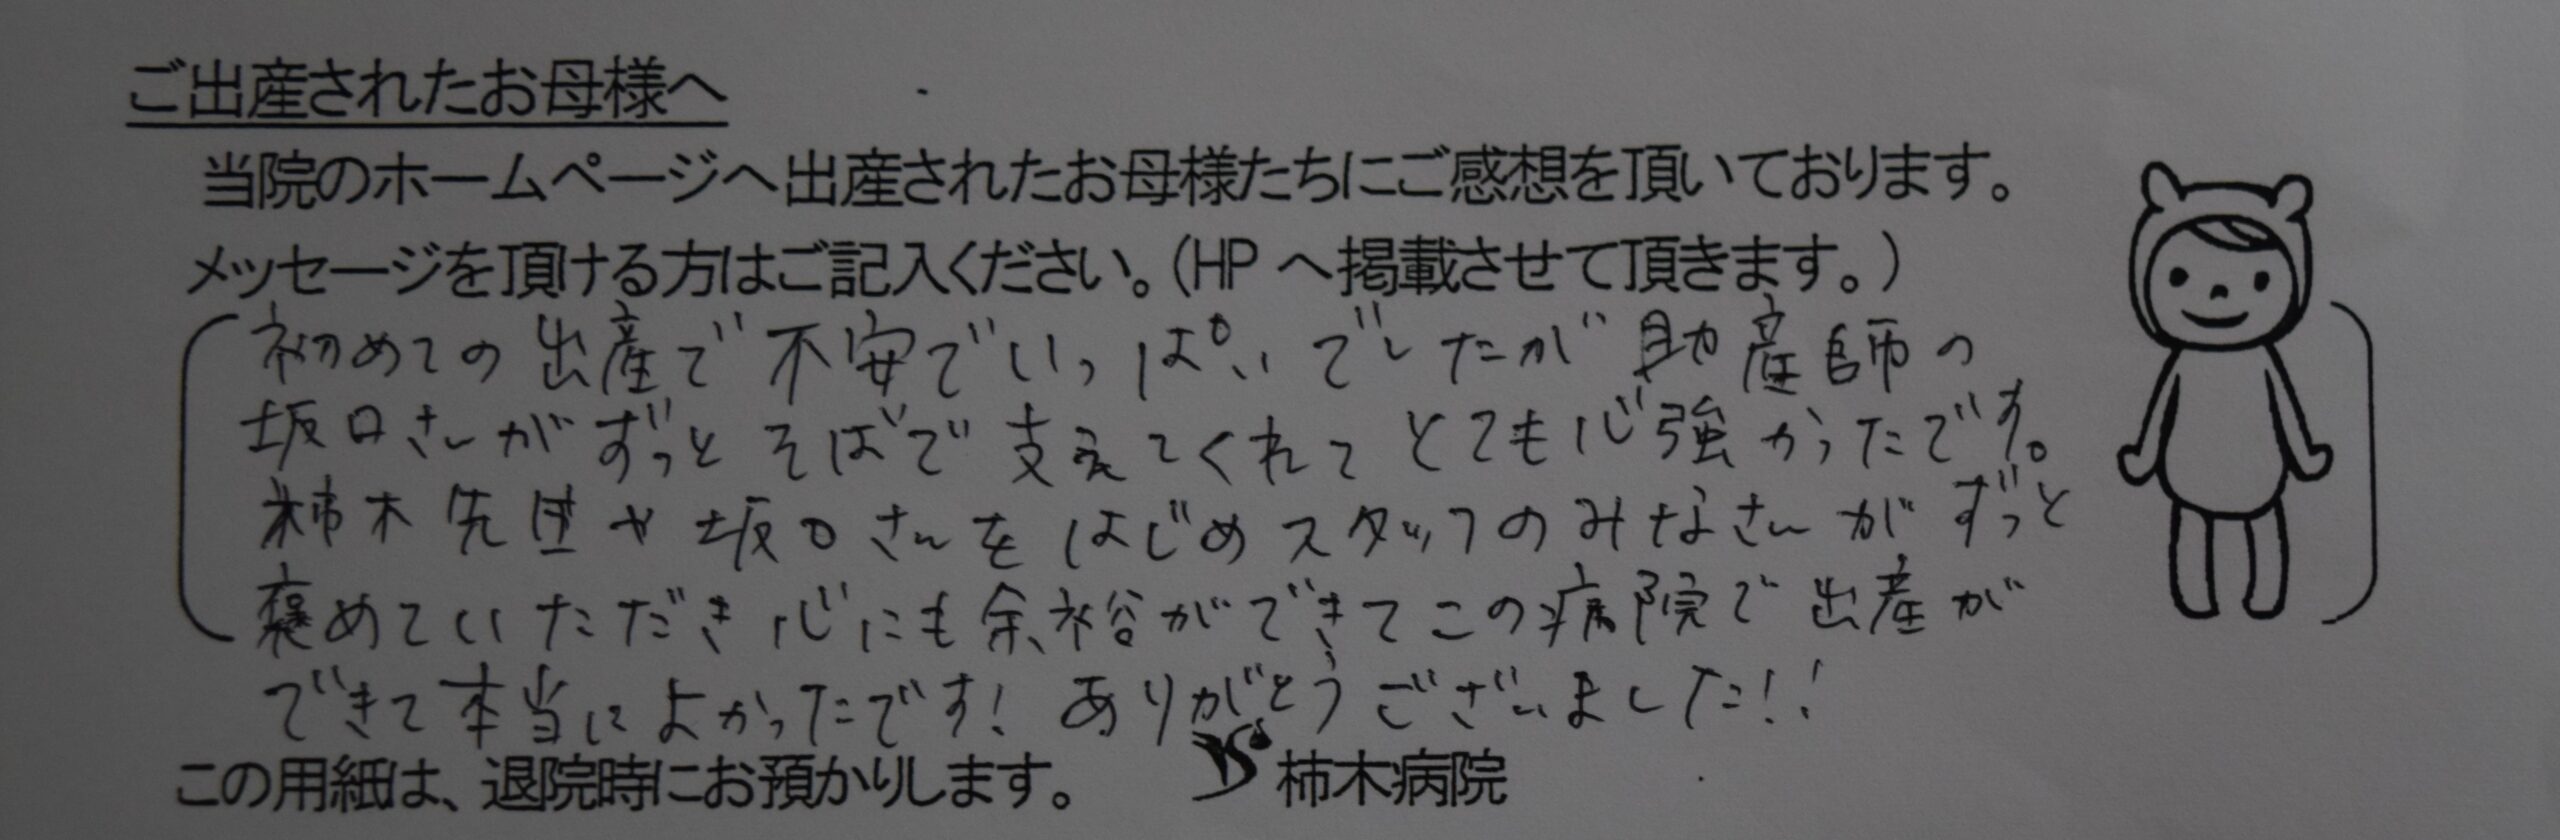 ご出産されたお母様へ
当院のホームページへ出産されたお母様たちにご感想を頂いております。
メッセージを頂ける方はご記入ください。(HPへ掲載させて頂きます。)
初めての出産で不安でいっぱいでしたが助産師の
坂口さんがずっとそばで支えてくれてとても心強かったです。
柿木先生や坂口さんをはじめスタッフのみなさんがずっと
褒めていただき心にも余裕ができてこの病院で出産が
できて本当によかったです!ありがとうございました!!
この用紙は、退院時にお預かりします。 柿木病院